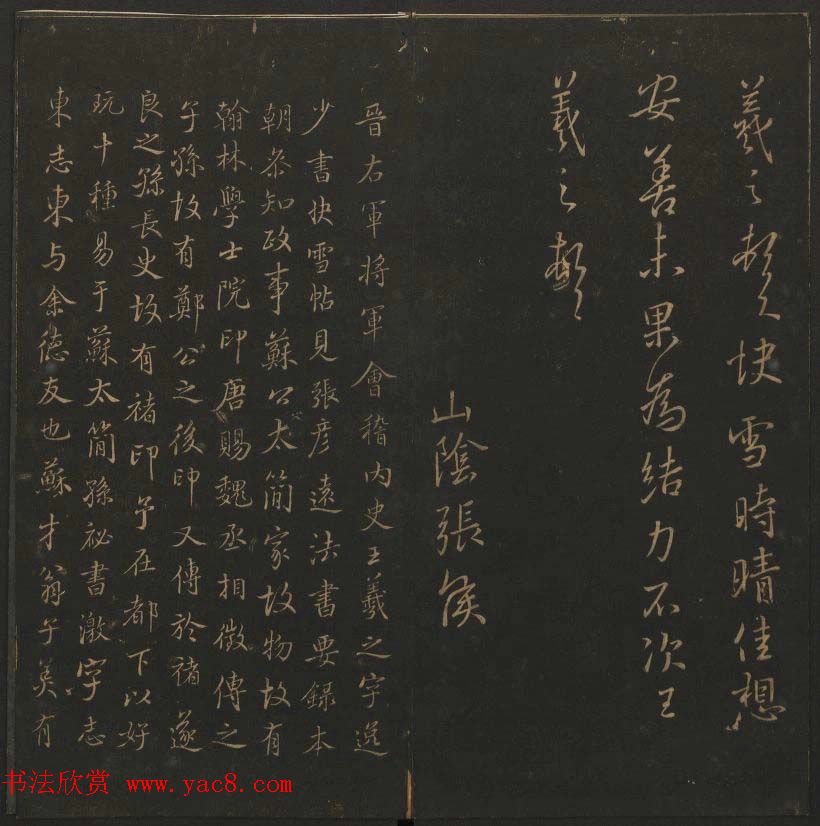 羲之頓首快雪時晴佳想
安善未果為結力不次王
羲之頓首
山陰張侯
晉右軍將軍會稽內史王羲之字逸
少書快雪帖見張彥遠法書要錄本
朝叅知政事蘇公太簡家故物故有
翰林學士院印唐賜魏丞相徵傳之
子孫故有鄭公之後印又傳於禇遂
良之孫長史故有禇印予在都下以好
玩十種易于蘇太簡孫祕書激字志
東志東与余德友也蘇才翁子美有
书法欣赏 www.yac8.com